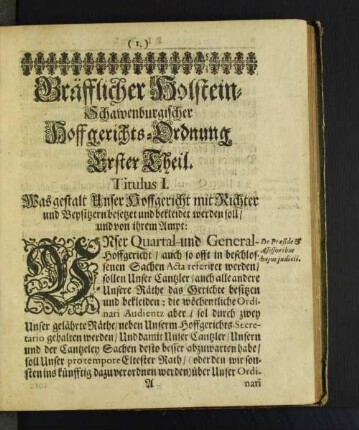 (1.)
Gräfflicher Holstein-
Schawenburgischer
Hoffgerichts-Ordnung
Erster Theil.
Titulus I.
Was gestalt Unser Hoffgericht mit Richter
und Beysitzern besetzet und bekleidet werden soll/
und von ihrem Ampt:
UNser Quartal-und General-
Hoffgericht / auch so offt in beschlos-
senen Sachen Acta referiret werden/
sollen Unser Cantzler / auch alle andere
Unsere Räthe das Gericht besitzen
und bekleiden: die wöchentliche Ordi-
nari Audientz aber / sol durch zwey
Unser gelährte Räthe/ neben Unserm Hoffgerichts-Secre-
tario gehalten werden / Und damit Unser Cantzler / Unsern
und der Cantzeley Sachen desto besser abzuwarten habe/
soll Unser pro tempore Eltester Rath / (oder den wir son-
sten ins künfftig dazu verordnen werden) über Unser Ordi-
A nari
De Præside &
Assessoribus
hujus judicii.